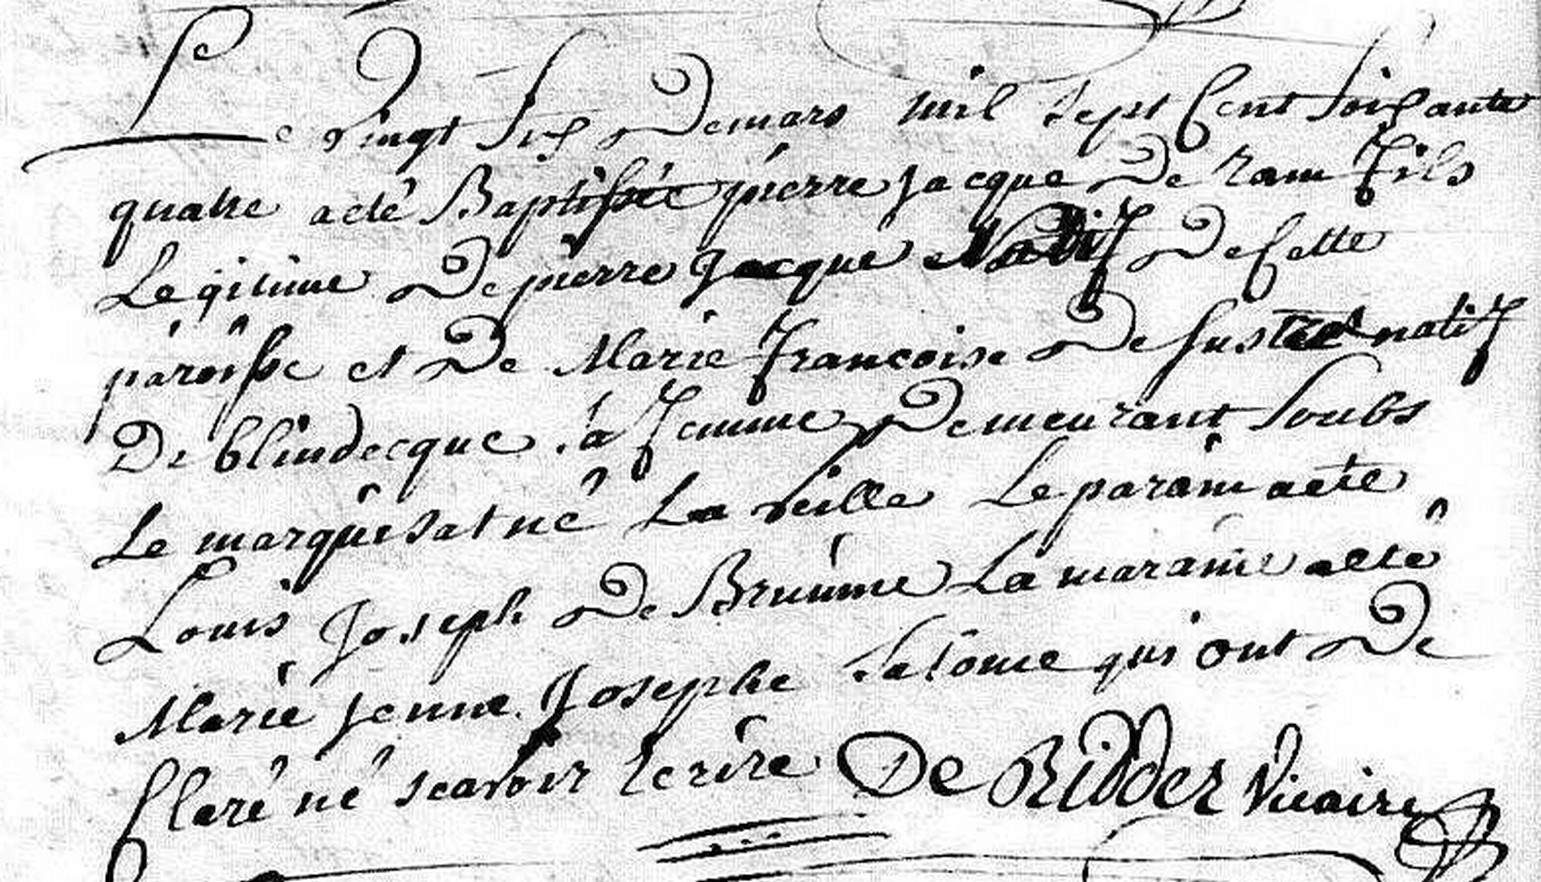 Le vingt six De mars mil sept Cent soixante
quatre a eté Baptissée pierre jacque De ram fils
Legitime De pierre Jacque Natif De Cette
paroisse et De Marie francoise De sus natif
De blindecque sa femme Demeurant soubs
Le marquisat né La veille Le parain a eté
Louis Joseph De Bruüme La maraine a eté
Marie jenne Josephe Salome qui ont De
Claré né scavoir Ecrire De Ridder Vicaire